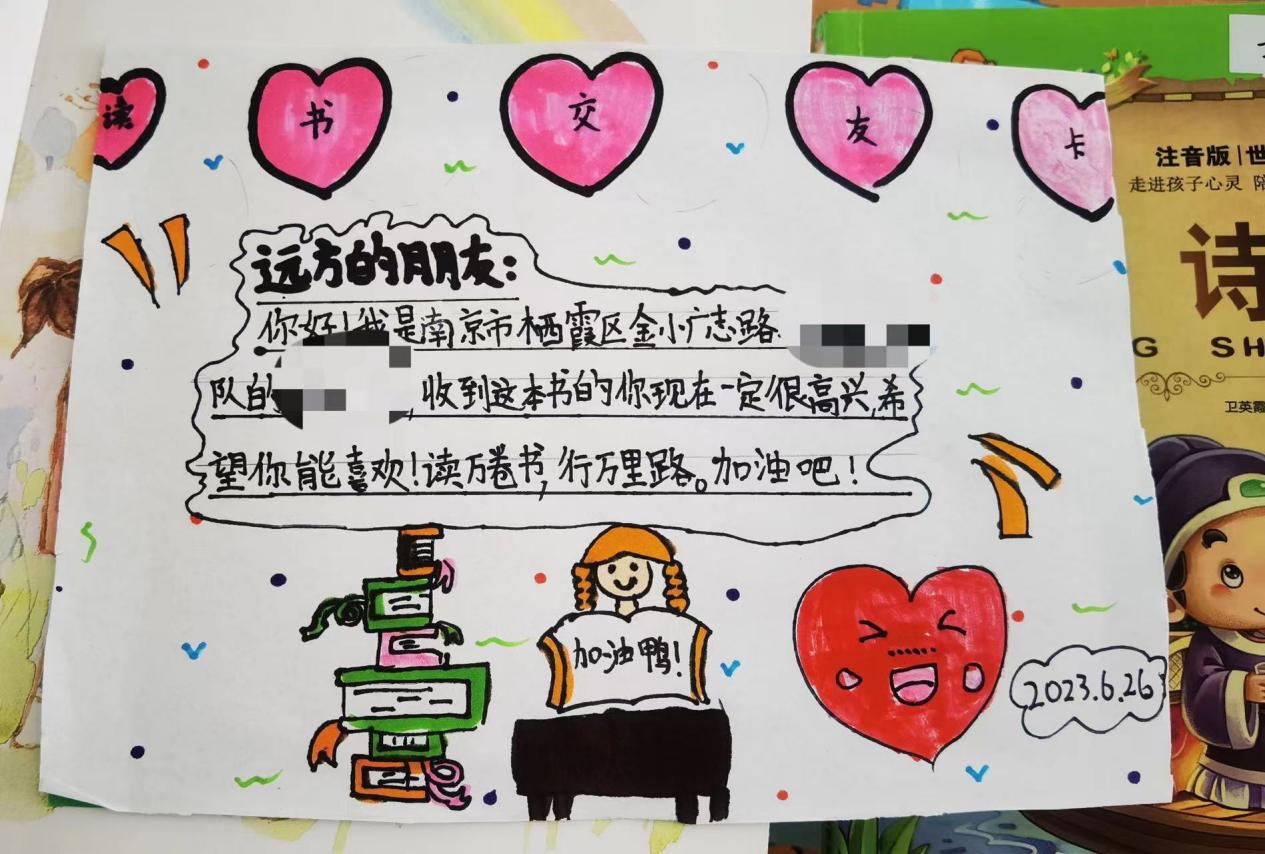 读 书 交 友 卡
远方的朋友:
你好!我是南京市栖霞区金小广志路
队的 ,收到这本书的你现在一定很高兴,希
望你能喜欢!读万卷书,行万里路。加油吧!
加油鸭!
2023.6.26
注音版|世
走进孩子心灵 陪
诗
G SH
卫英霞